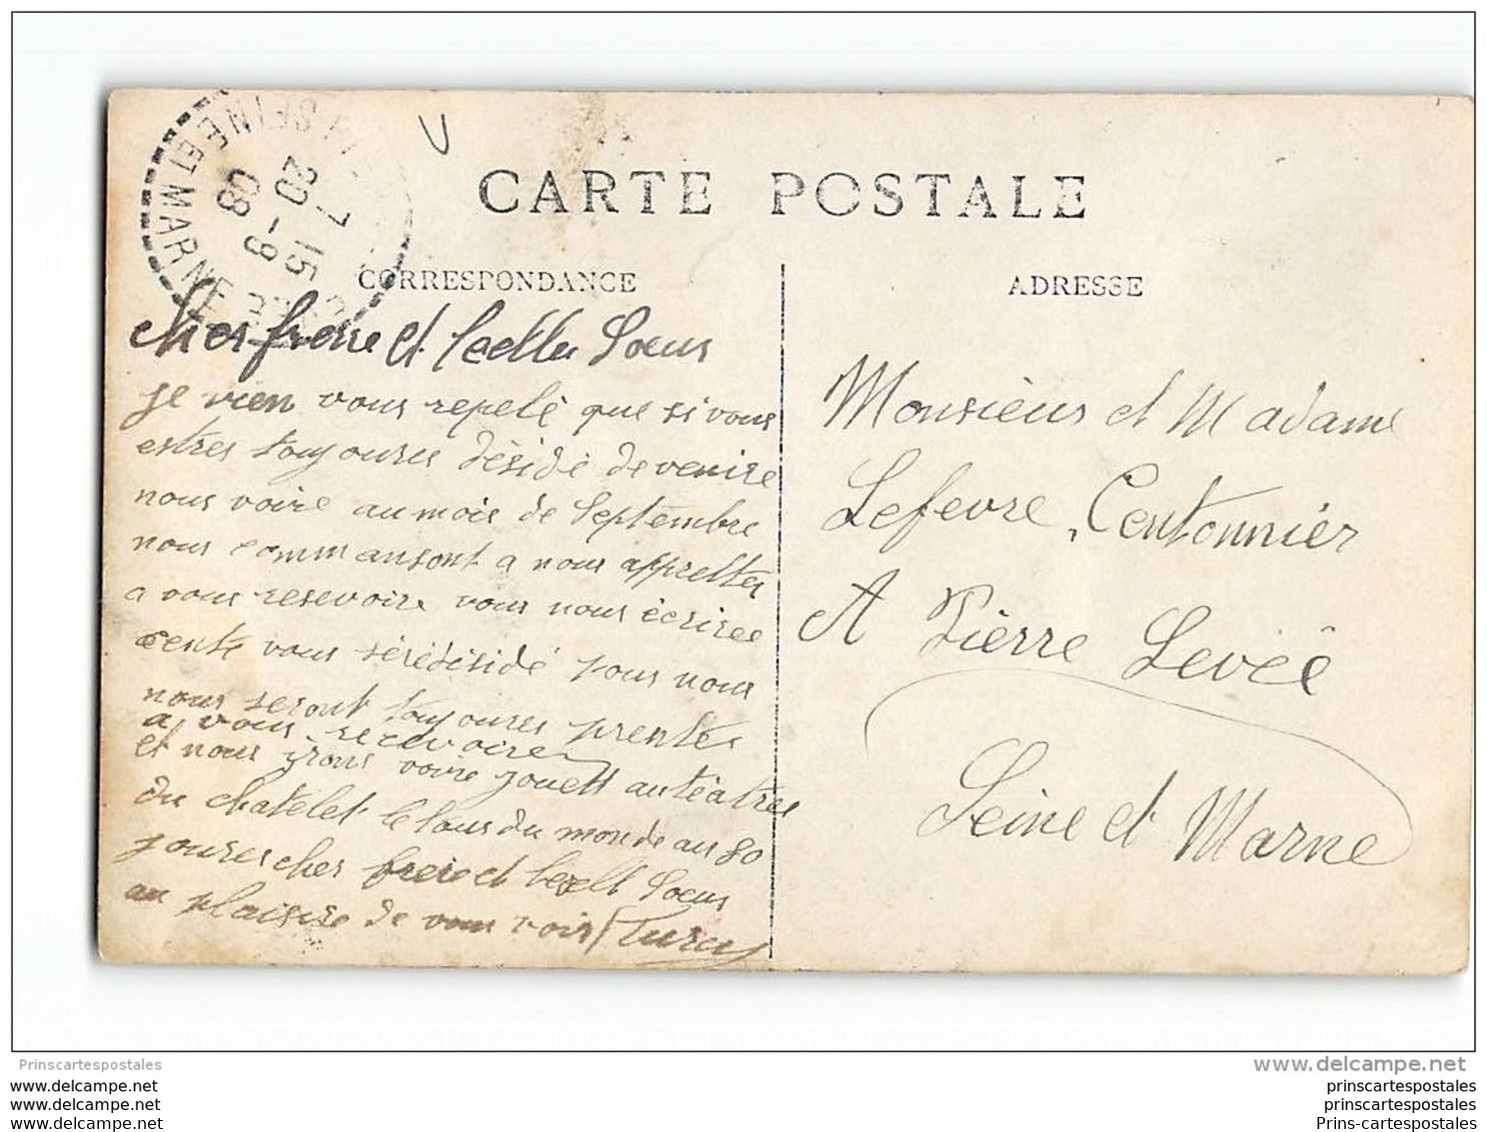 CARTE POSTALE
CORRESPONDANCE
ADRESSE
SEINE ET MARNE
7 15
20 - 8
08
cher frere et belle Soeur
je vien vous repelé que si vous
estres toujoures déside devenire
nous voire au mois de Septembre
nous commansont a nous appretter
a vous resevoire vous nous écriree
vous sérédéside pour nous
nous seront toujoures prentes
a vous recevoire
et nous irons voire jouett au téatres
du chatelet le tour du monde au 80
joures cher frere et belle Soeur
au plaisire de vous voir Turcy
Monsieur et Madame
Lefevre, Contonnier
A Pierre Levéé
Seine et Marne
Prinscartespostales
www.delcampe.net
www.delcampe.net
www.delcampe.net
www.delcampe.net
prinscartespostales
prinscartespostales
Prins-cartespostales